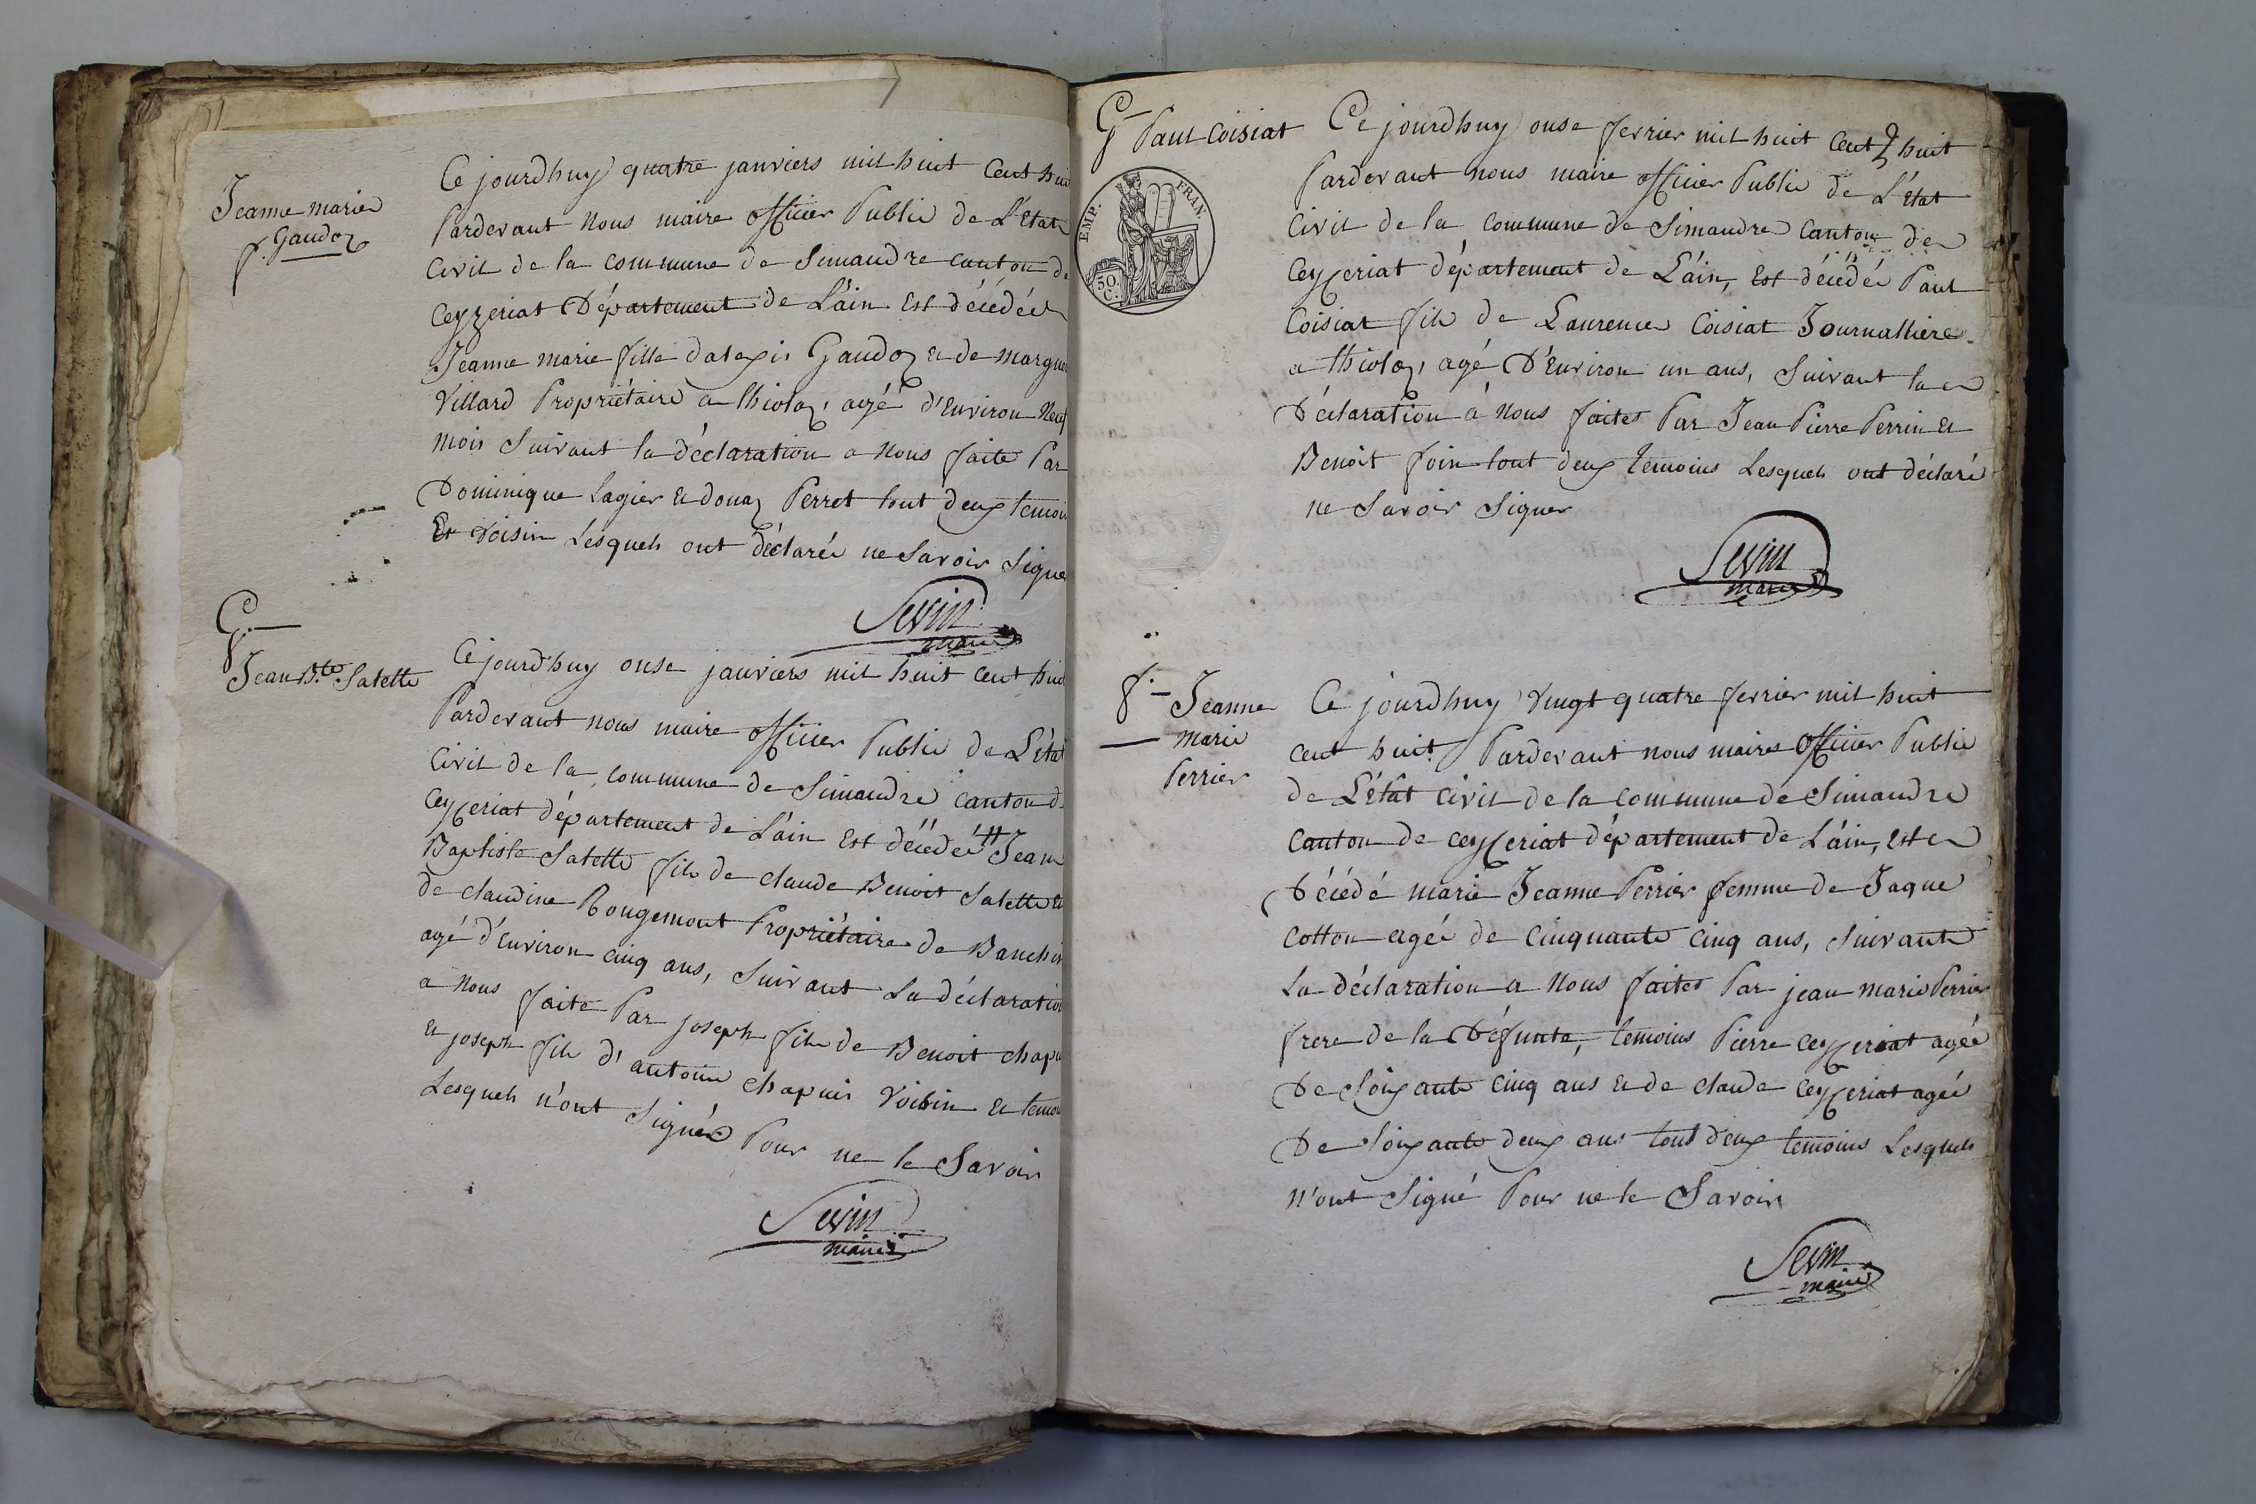 Jeanne marie
f. Gaudoz
Ce jourdhuy quatre janviers mil huit Cent hui
Pardevant nous maire officier Public de L'Etat
Civil de la commune de Simandre canton de
Ceyzeriat Département de L'áin Est décédée
Jeanne marie fille dalexis Gaudoz et de margue
Villard Propriétaire a thiolaz, agé d'Environ Neuf
mois Suivant la déclaration a nous faite Par
Dominique Lagier et donaz Perret tout deux temoin
Et voisin Lesquels ont déclaréé ne Savoir Signe
Sevin
maire
G.
Jean B.te Salette
Ce jourd'huy onse janviers mil huit cent huit
Pardevant nous maire officier Public de L'état
Civil de la commune de Simandre canton de
Ceyzeriat département de L'áin Est décédé Jean
Baptiste Salette fils de claude Benoit Salette et
de claudine Rougemont Propriétaire de Banchin
agé d'Environ cinq ans, Suivant La déclaration
a nous faite Par joseph fils de Benoit chapui
et joseph fils d'antoine chapuis Voisin et temoi
Lesquels n'ont Signés Pour ne le Savoir
Sevin
maire
G Paul Coisiat
EMP. FRAN.
50. C.
Ce jourdhuy onse fevrier mil huit Cent huit
Pardevant nous maire officier Public de L'Etat
Civil de la commune de Simandre Canton de
Ceyzeriat département de L'áin, Est décédéé Paul
Coisiat fils de Laurence Coisiat Journalliere
a thiolaz, agé D'Environ un ans, Suivant la
Déclaration à nous faites Par Jean Pierre Perrin et
Benoit foin tout deux temoins Lesquels ont déclaré
ne Savoir Signer
Sevin
maire
f. Jeanne
marie
Perrier
Ce jourdhuy Vingt quatre fevrier mil huit
cent huit Pardevant nous maires officier Public
de L'état civil de la commune de Simandre
Canton de ceyzeriat département de L'áin, Est
Décédé marie Jeanne Perrier femme de Jaque
Cotton agéé de Cinquante cinq ans, Suivante
La déclaration a nous faites Par jean marie Perrier
frere de la Défunte, temoins Pierre ceyzeriat agéé
De Soixante cinq ans et de claude ceyzeriat agéé
De Soixante deux ans tout deux temoins Lesquels
n'ont Signé Pour ne le Savoir
Sevin
maire